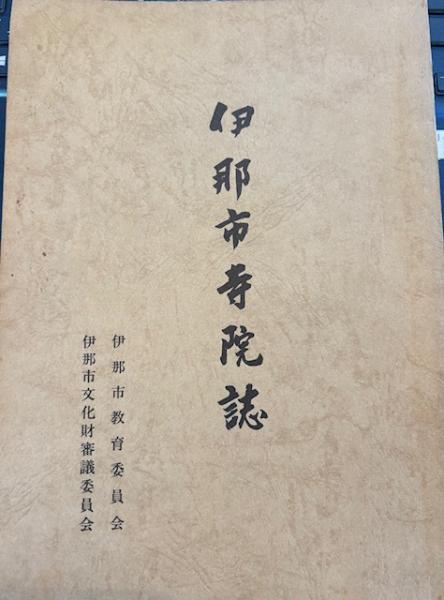 伊那市寺院誌
伊那市教育委員会
伊那市文化財審議委員会